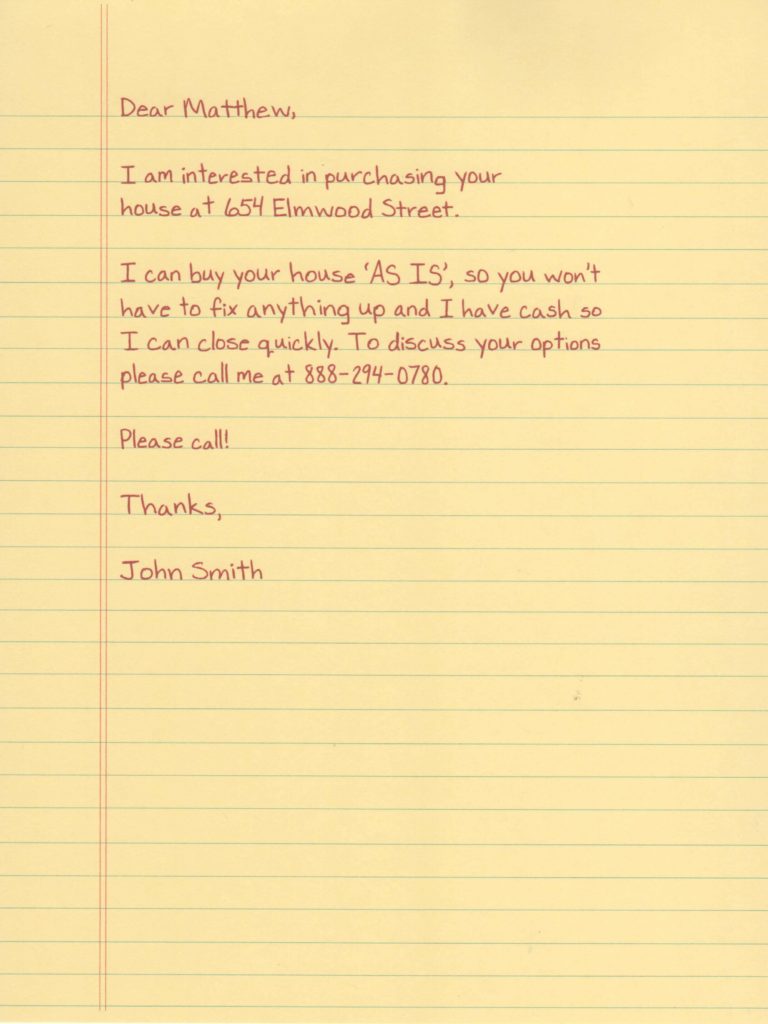 Dear Matthew,
I am interested in purchasing your
house at 654 Elmwood Street.
I can buy your house 'AS IS', so you won't
have to fix anything up and I have cash so
I can close quickly. To discuss your options
please call me at 888-294-0780.
Please call!
Thanks,
John Smith